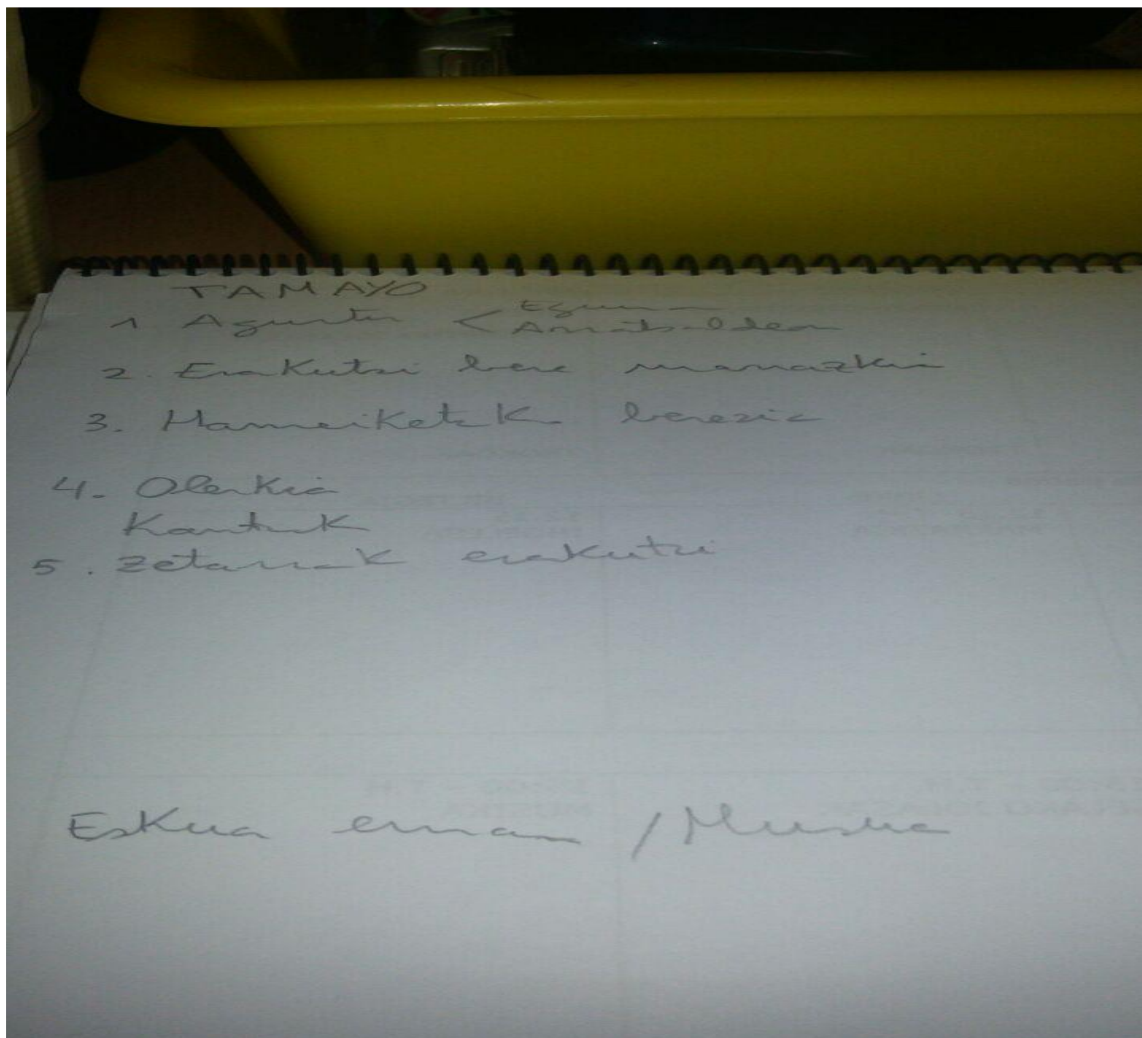 TAMAYO
1 Agurtu < Eguna
Arratsaldea
2. Erakutsi bere marrazkia
3. Hamaiketak berezia
4. Olerkia
Kantuk
5. Zetarrak erakutsi
Eskua eman / Musua